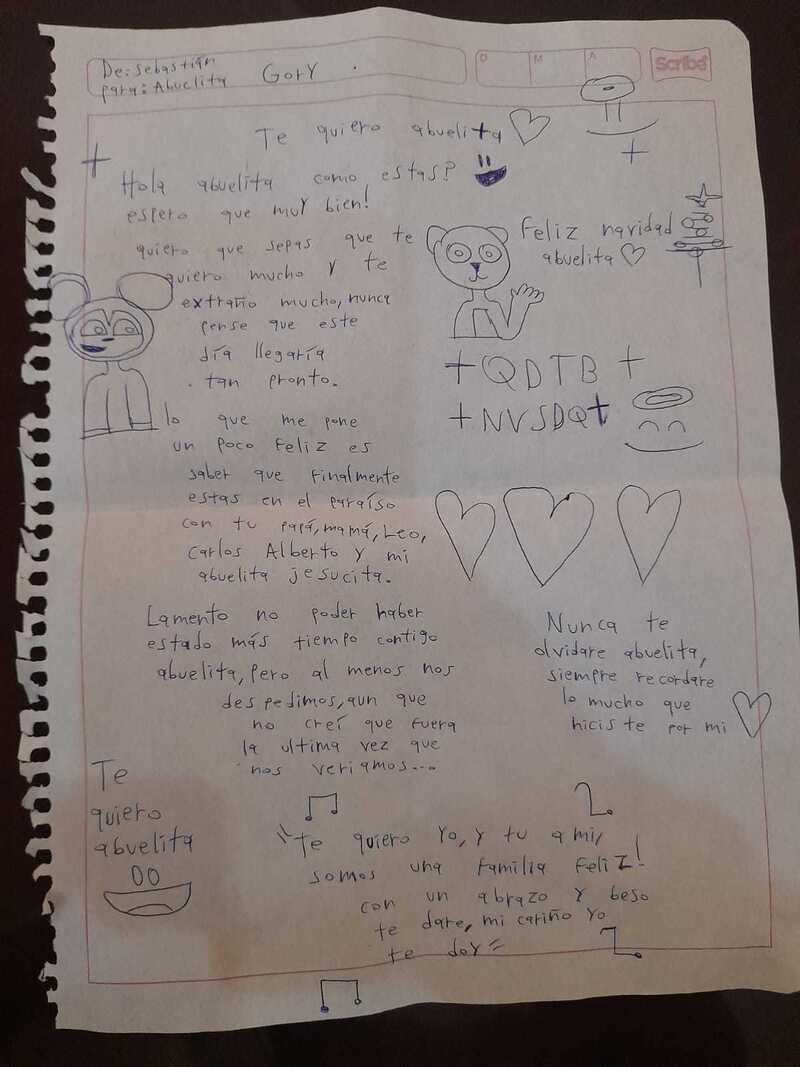 De: Sebastián
para: Abuelita Gory .
D M A
Scribe
Te quiero abuelita
Hola abuelita como estas?
espero que muy bien!
quiero que sepas que te
quiero mucho y te
extraño mucho, nunca
pense que este
día llegaría
tan pronto.
Feliz navidad
abuelita
QDTB
NVSDQ
lo que me pone
un poco feliz es
saber que finalmente
estas en el paraíso
con tu papá, mamá, Leo,
Carlos Alberto y mi
abuelita jesucita.
Lamento no poder haber
estado más tiempo contigo
abuelita, pero al menos nos
despedimos, aun que
no creí que fuera
la ultima vez que
nos veriamos...
Nunca te
olvidare abuelita,
siempre recordare
lo mucho que
hiciste por mi
Te
quiero
abuelita
"Te quiero yo, y tu a mi,
somos una familia feliz!
con un abrazo y beso
te dare, mi cariño yo
te doy"